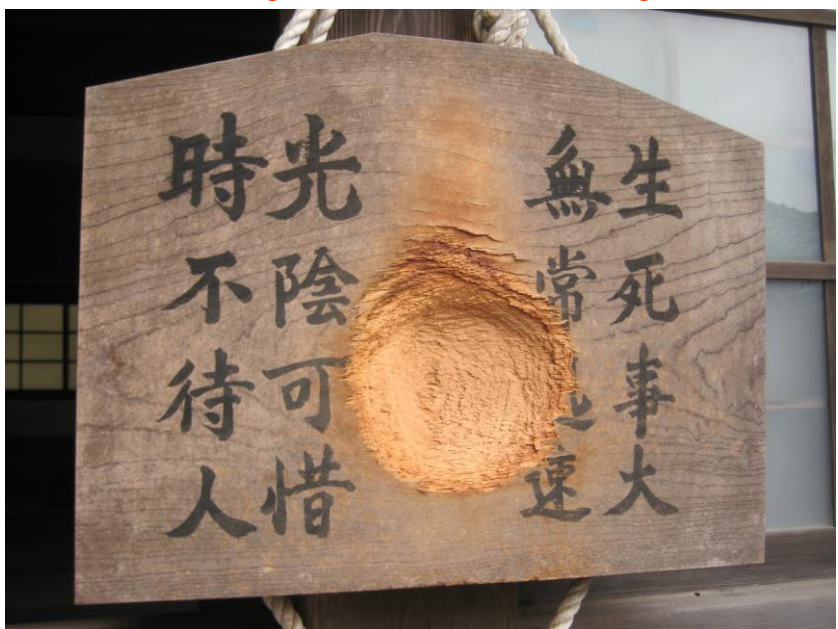 生死事大
無常速
光陰可惜
時不待人